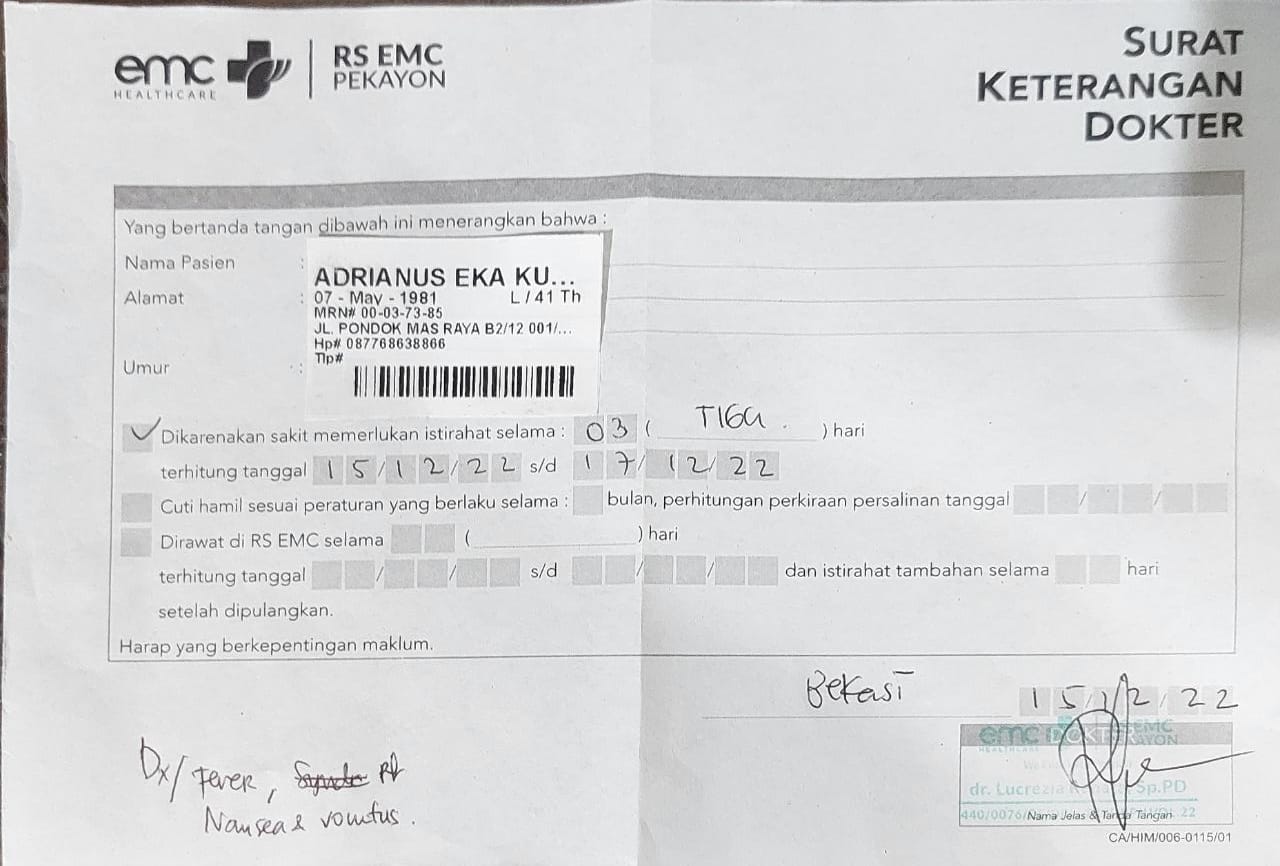 emc
HEALTHCARE
RS EMC
PEKAYON
SURAT
KETERANGAN
DOKTER
Yang bertanda tangan dibawah ini menerangkan bahwa :
Nama Pasien :
ADRIANUS EKA KU...
Alamat : 07 - May - 1981 L / 41 Th
MRN# 00-03-73-85
JL. PONDOK MAS RAYA B2/12 001/...
Hp# 087768638866
Tlp#
Umur :
Dikarenakan sakit memerlukan istirahat selama : 03 ( TIGA . ) hari
terhitung tanggal 15/12/22 s/d 17/12/22
Cuti hamil sesuai peraturan yang berlaku selama : bulan, perhitungan perkiraan persalinan tanggal / /
Dirawat di RS EMC selama ( ) hari
terhitung tanggal / / s/d / / dan istirahat tambahan selama hari
setelah dipulangkan.
Harap yang berkepentingan maklum.
Bekasi 15/12/22
emc DOKTER EMC
HEALTHCARE KAYON
dr. Lucrezia Sp.PD
440/0076/ Nama Jelas & Tanda Tangan 22
CA/HIM/006-0115/01
Dx/ Fever,
Nausea & vomitus .